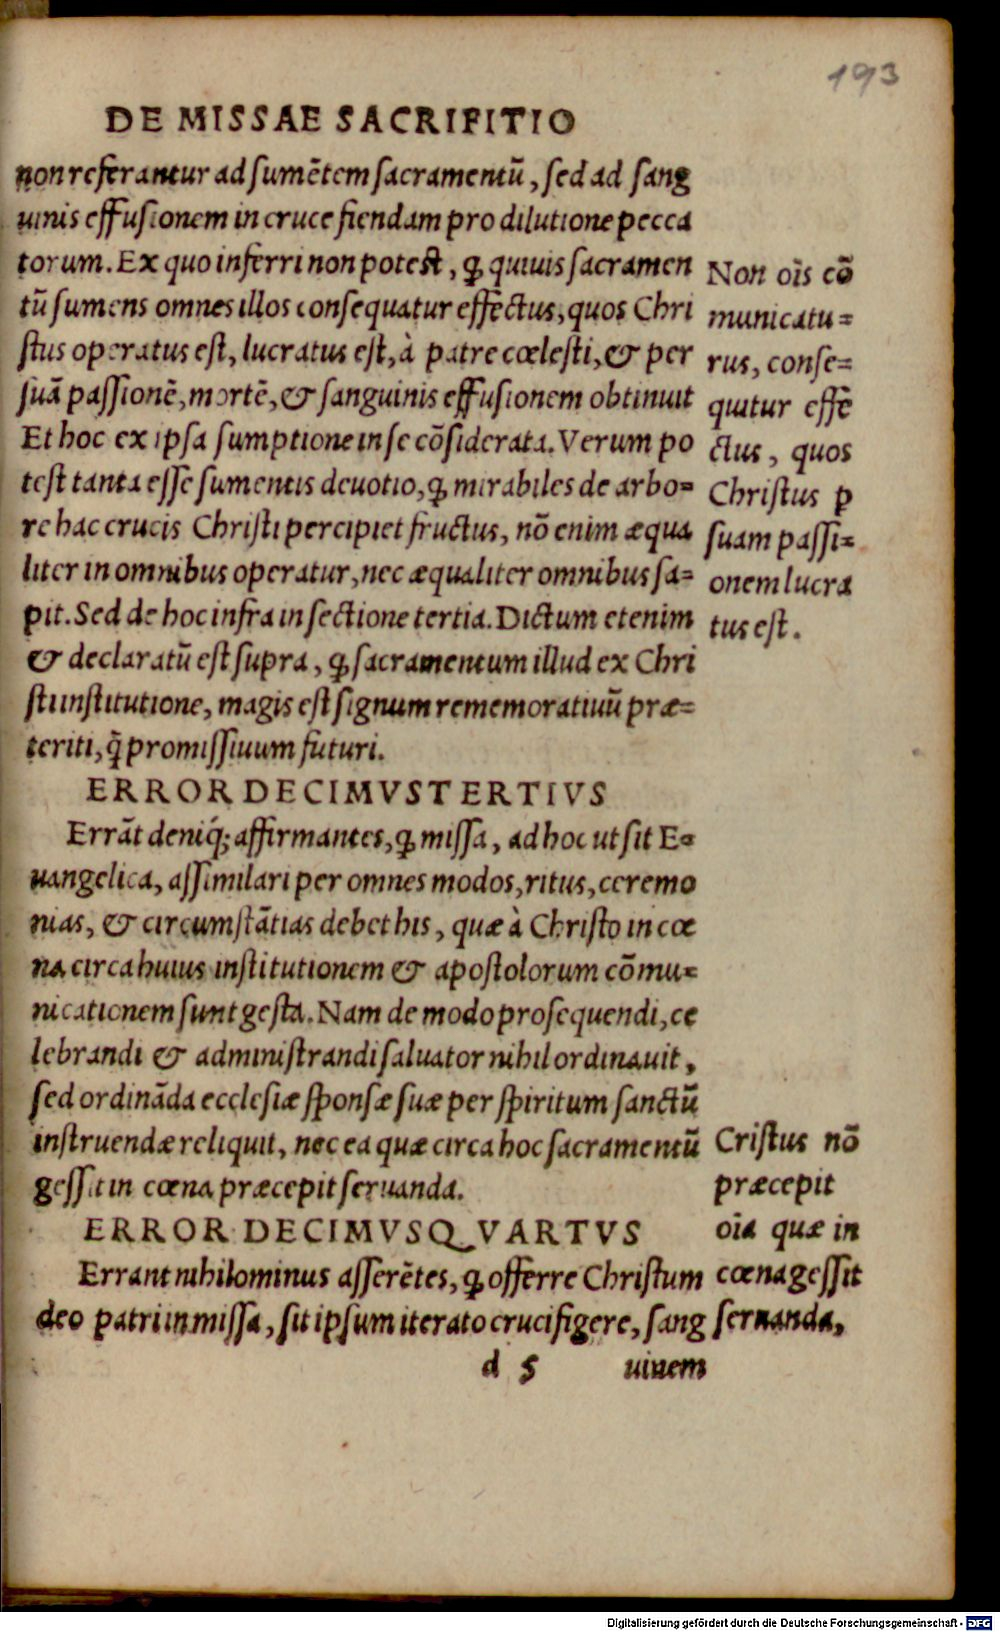 193
DE MISSAE SACRIFITIO
non referantur ad sumētem sacramentū, sed ad sang
uinis effusionem in cruce fiendam pro dilutione pecca
torum. Ex quo inferri non potest, ꝙ quiuis sacramen
tū sumens omnes illos consequatur effectus, quos Chri
stus operatus est, lucratus est, à patre cœlesti, & per
suā passionē, mortē, & sanguinis effusionem obtinuit
Et hoc ex ipsa sumptione in se cōsiderata. Verum po
test tanta esse sumentis deuotio, ꝙ mirabiles de arbo=
re hac crucis Christi percipiet fructus, nō enim æqua
liter in omnibus operatur, nec æqualiter omnibus sa=
pit. Sed de hoc infra in sectione tertia. Dictum etenim
& declaratū est supra, ꝙ sacramentum illud ex Chri
sti institutione, magis est signum rememoratiuū præ=
teriti, q̄ promissiuum futuri.
Non oīs cō
municatu=
rus, conse=
quitur effē
ctus, quos
Christus ꝑ
suam passi=
onem lucra
tus est.
ERROR DECIMVS TERTIVS
Errāt deniq́; affirmantes, ꝙ missa, ad hoc ut sit E=
uangelica, assimilari per omnes modos, ritus, ceremo
nias, & circumstātias debet his, quæ à Christo in cœ
na circa huius institutionem & apostolorum cōmu=
nicationem sunt gesta. Nam de modo prosequendi, ce
lebrandi & administrandi saluator nihil ordinauit,
sed ordināda ecclesiæ sponsæ suæ per spiritum sanctū
instruendæ reliquit, nec ea quæ circa hoc sacramentū
gessit in cœna præcepit seruanda.
Cristus nō
præcepit
oīa quæ in
cœna gessit
seruanda,
ERROR DECIMVS QVARTVS
Errant nihilominus asserētes, ꝙ offerre Christum
deo patri in missa, sit ipsum iterato crucifigere, sang
d 5 uinem
Digitalisierung gefördert durch die Deutsche Forschungsgemeinschaft - DFG